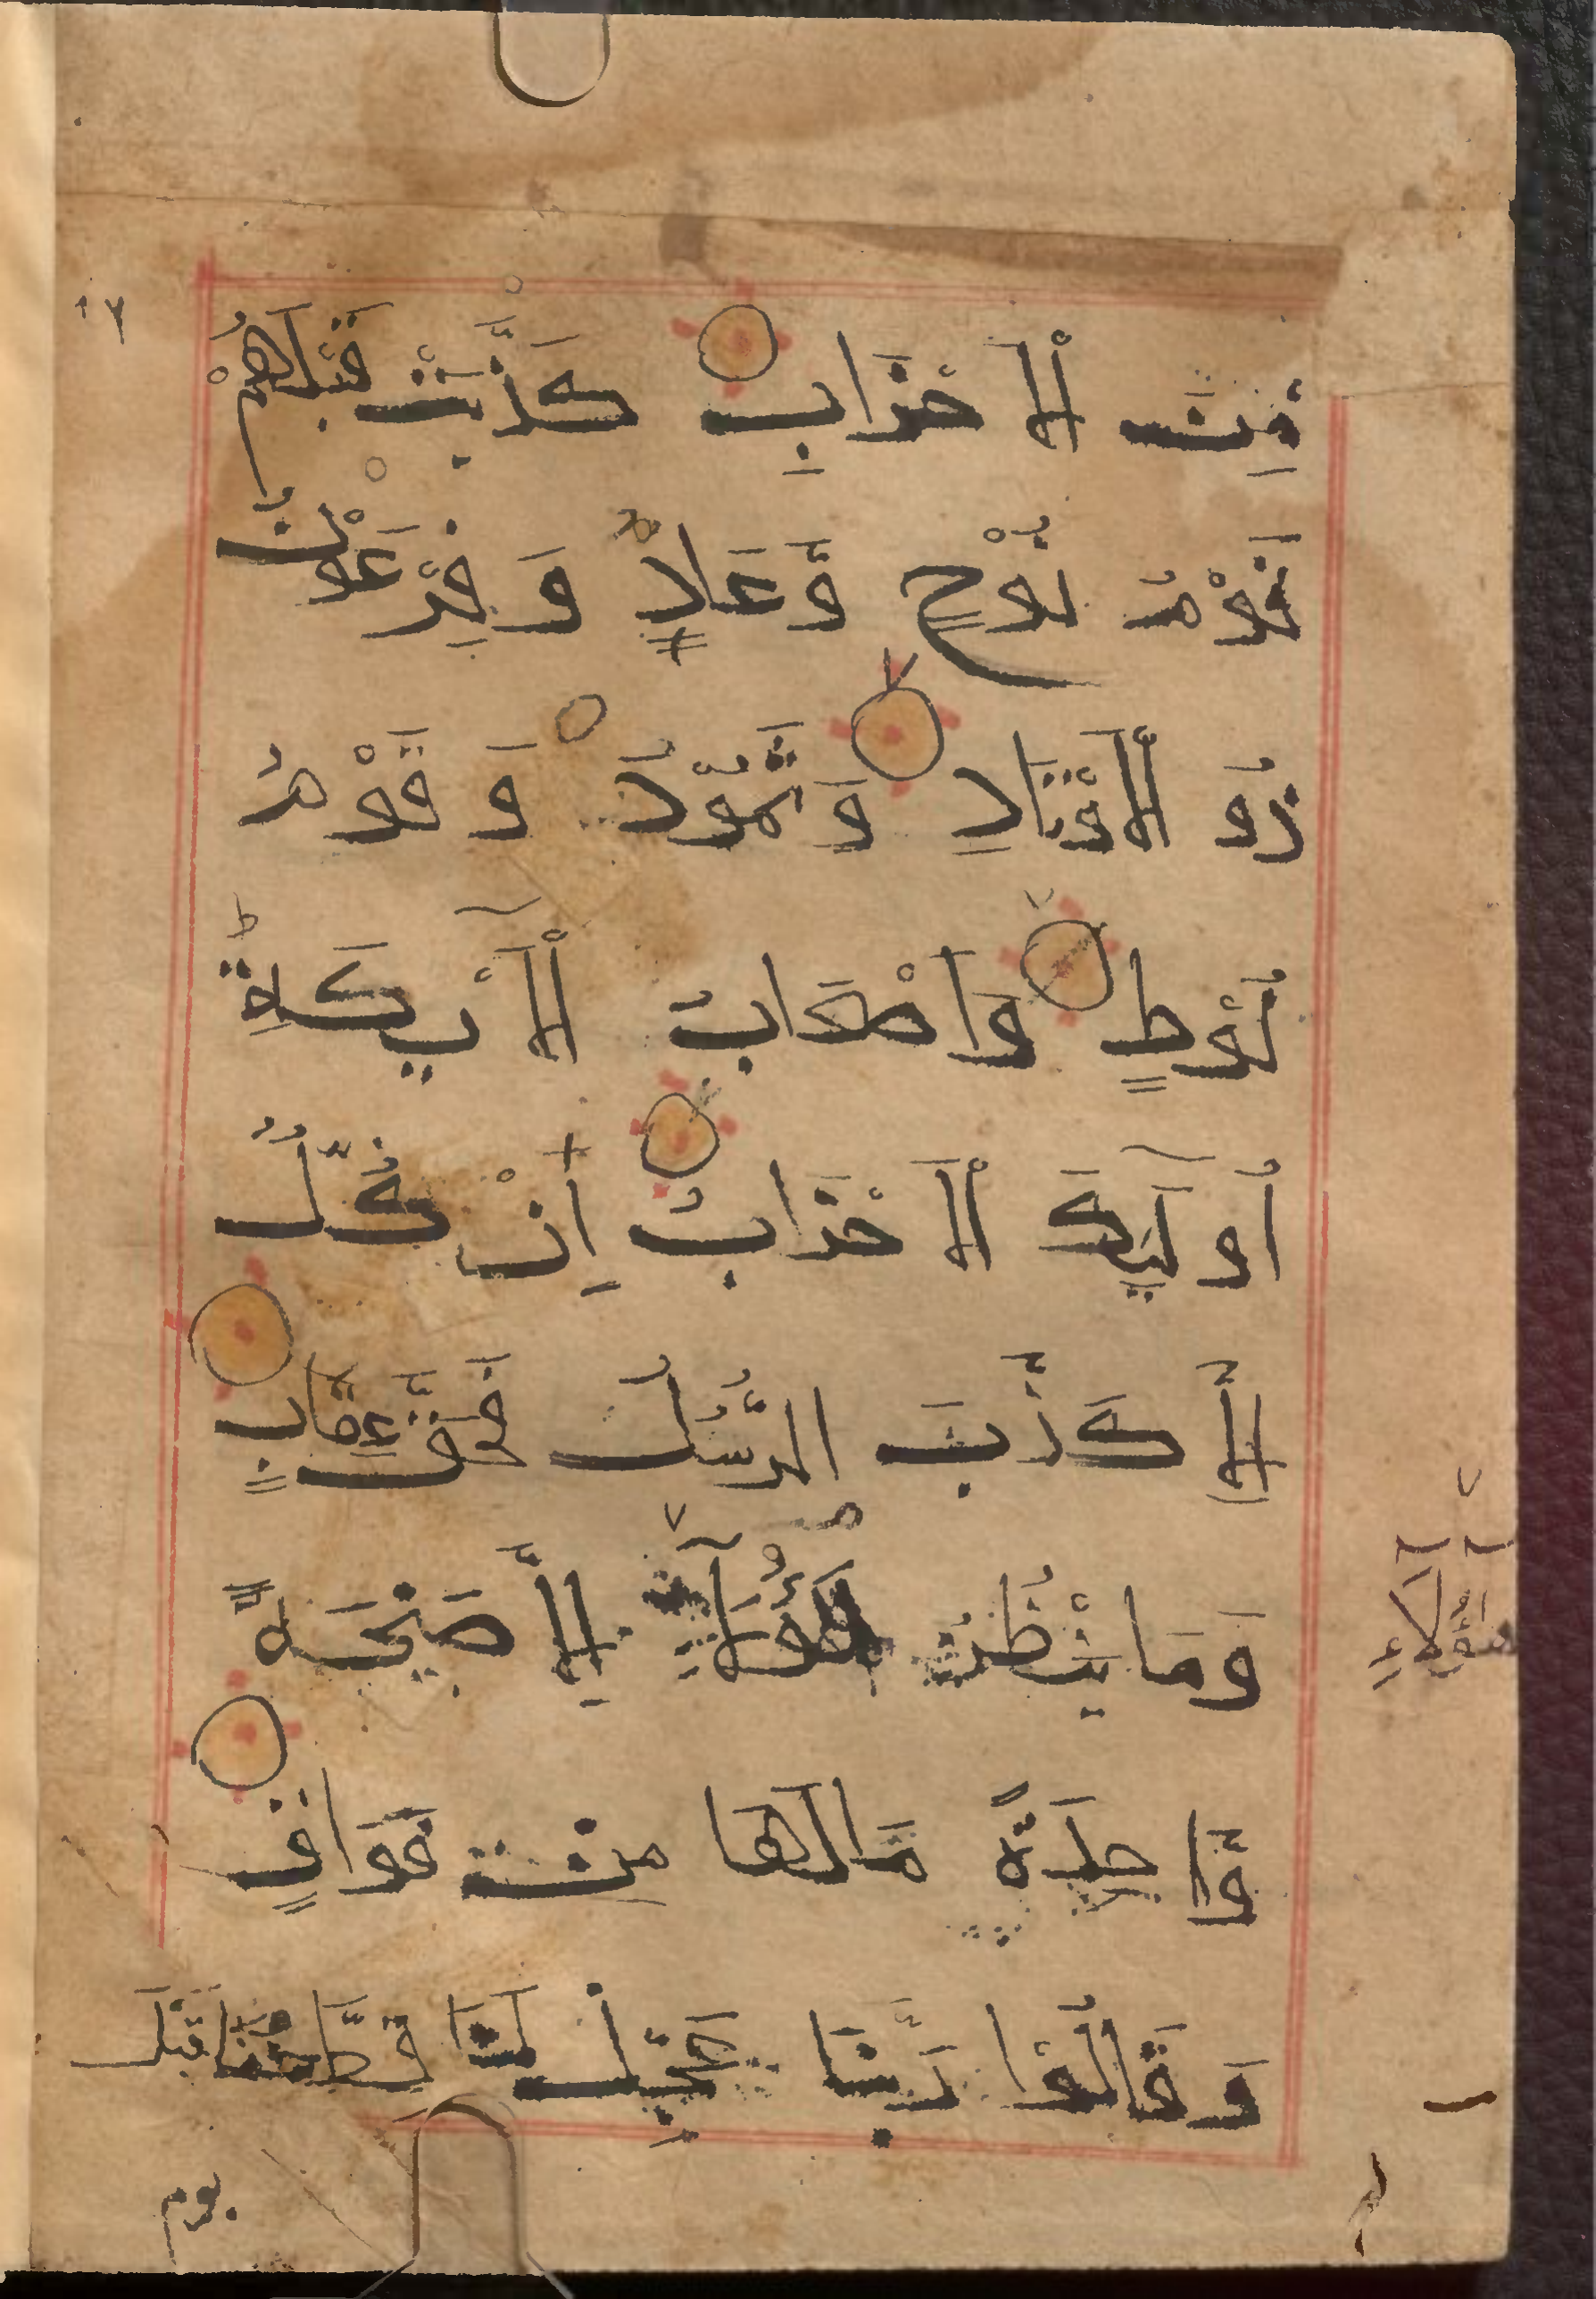 ١٢
مِنَ الْاَحْزَابِ كَذَّبَتْ قَبْلَهُمْ
قَوْمُ نُوْحٍ وَّعَادٌ وَ فِرْعَوْنُ
ذُو الْاَوْتَادِ وَ ثَمُوْدُ وَ قَوْمُ
لُوْطٍ وَاَصْحَابُ الْاَيْكَةِ ط
اُولٰٓئِكَ الْاَحْزَابُ اِنْ كُلٌّ
اِلَّا كَذَّبَ الرُّسُلَ فَحَقَّ عِقَابِ
وَمَا يَنْظُرُ هٰٓؤُلَآءِ اِلَّا صَيْحَةً
هٰٓؤُلَآءِ
وَّاحِدَةً مَّالَهَا مِنْ فَوَاقٍ
وَ قَالُوْا رَبَّنَا عَجِّلْ لَنَا قِطَّنَا قَبْلَ
يوم